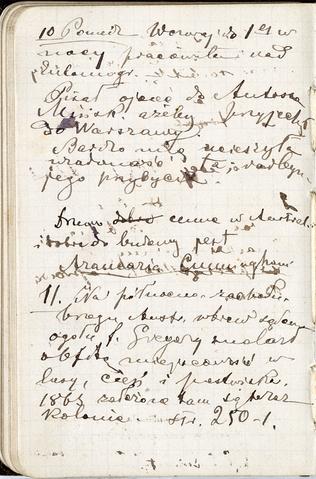 10 Poniedz. Wczoraj do 1ej w
nocy pracowałem nad
Pisał ojciec do Antosia
żeby przyjechał
do Warszawy.
Bardzo mię ucieszyła
wiadomość o
jego przybyciu.
Drzewo dobre cenne w Austral.
i dobre do budowy jest
Araucaria Cunninghami
11. Na północno-zachodn.
brzegu Aust. wbrew
ogółu p. Gregory znalazł
obfitą miejscowość w
lasy, ciecz i pastwiska.
1865 założona tam są teraz
kolonie. str. 250-1.